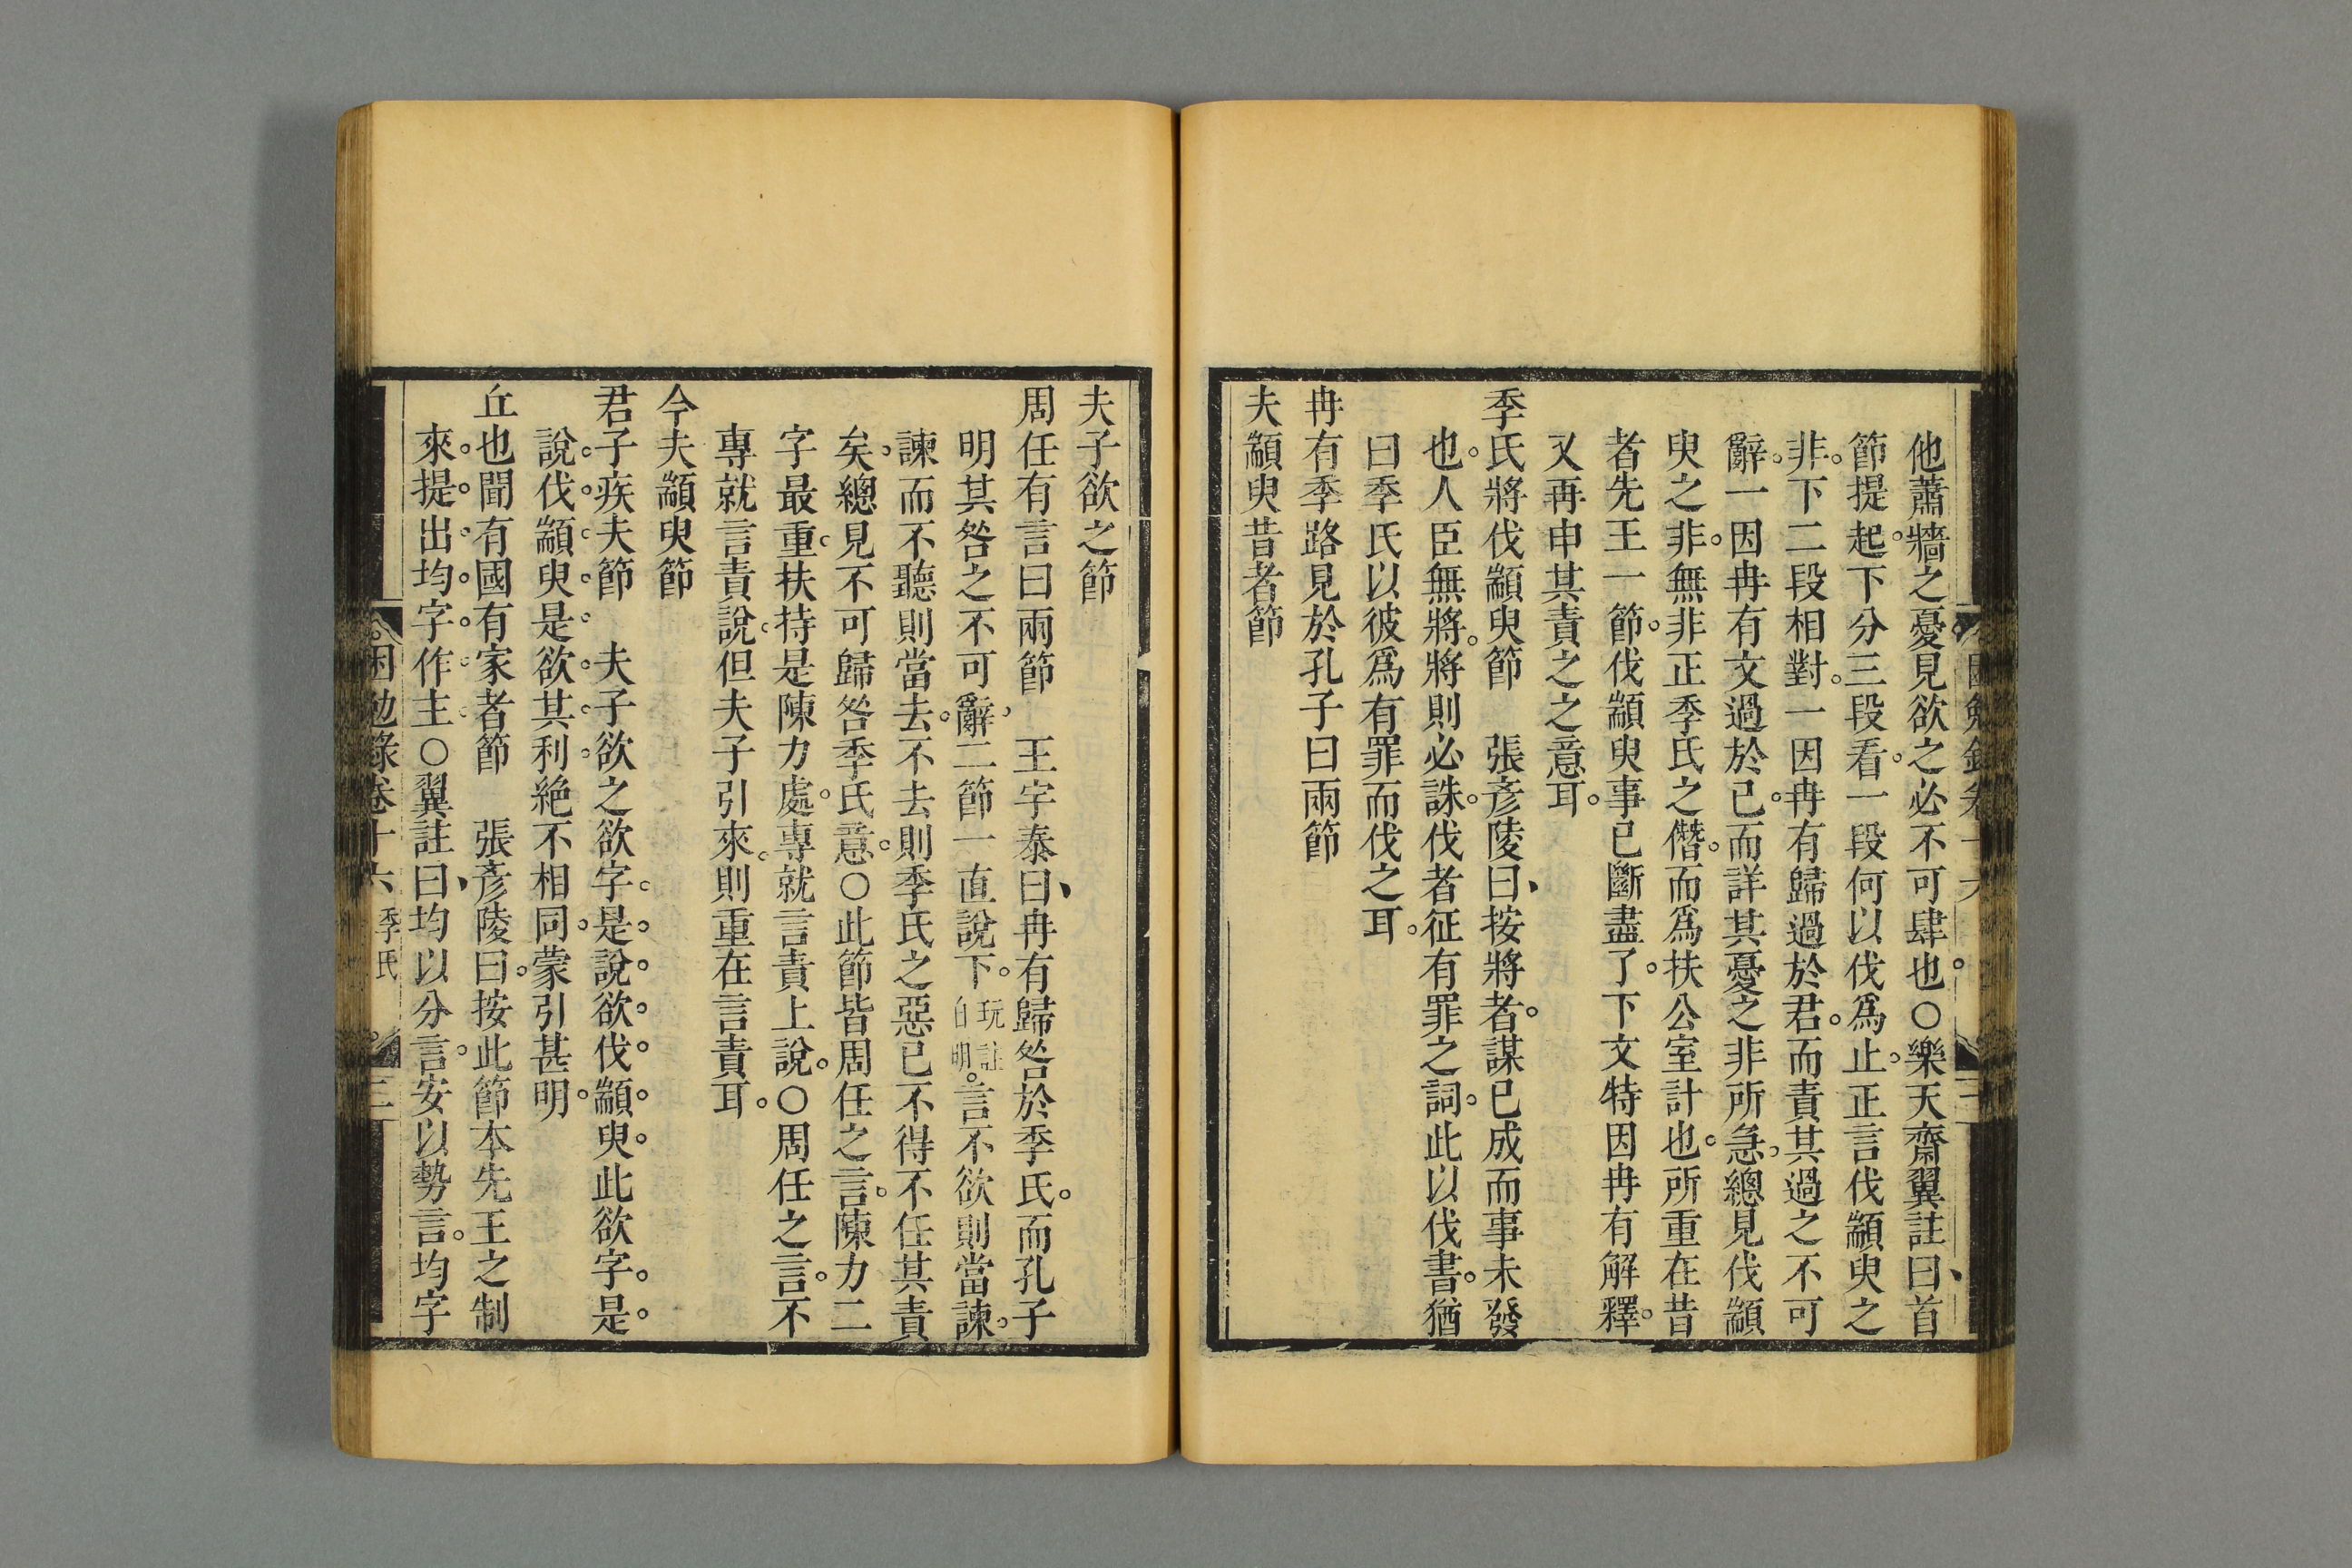 他蕭牆之憂見欲之必不可肆也○樂天齋翼註曰首
節提起下分三段看一段何以伐爲止正言伐顓臾之
非下二段相對一因冉有歸過於君而責其過之不可
辭一因冉有文過於已而詳其憂之非所急總見伐顓
臾之非無非正季氏之僭而爲扶公室計也所重在昔
者先王一節伐顓臾事已斷盡了下文特因冉有解釋
又再申其責之之意耳
季氏將伐顓臾節　張彥陵曰按將者謀已成而事未發
也人臣無將將則必誅伐者征有罪之詞此以伐書猶
曰季氏以彼爲有罪而伐之耳
冉有季路見於孔子曰兩節
夫顓臾昔者節
夫子欲之節
周任有言曰兩節　王宇泰曰冉有歸咎於季氏而孔子
明其咎之不可辭二節一直說下玩註自明言不欲則當諫
諫而不聽則當去不去則季氏之惡已不得不任其責
矣總見不可歸咎季氏意○此節皆周任之言陳力二
字最重扶持是陳力處專就言責上說○周任之言不
專就言責說但夫子引來則重在言責耳
今夫顓臾節
君子疾夫節　夫子欲之欲字是說欲伐顓臾此欲字是
說伐顓臾是欲其利絶不相同蒙引甚明
丘也聞有國有家者節　張彥陵曰按此節本先王之制
來提出均字作主○翼註曰均以分言安以勢言均字
困勉錄卷十六　季氏　三